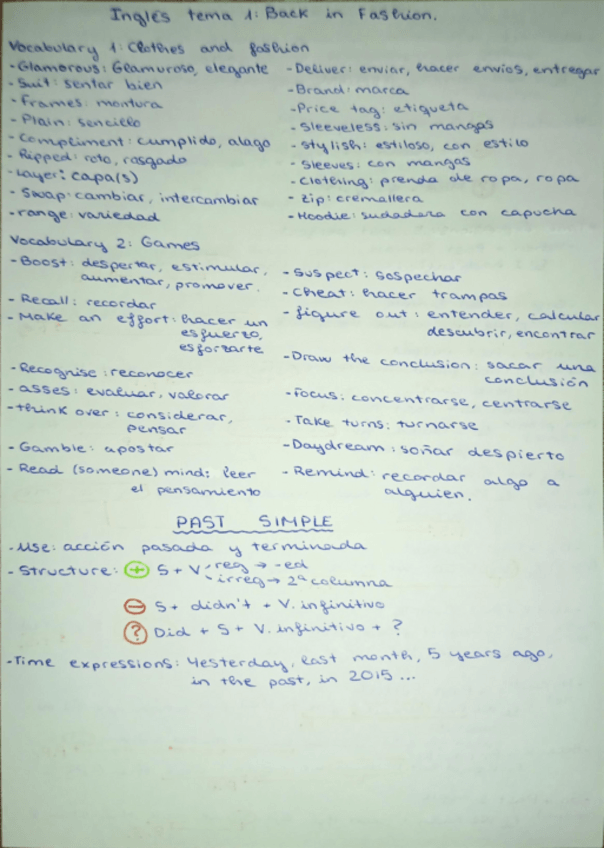 Inglés tema 1: Back in Fashion.
Vocabulary 1: Clothes and fashion
- Glamorous: Glamuroso, elegante
- Suit: sentar bien
- Frames: montura
- Plain: sencillo
- Compliment: cumplido, alago
- Ripped: roto, rasgado
- Layer: capa(s)
- Swap: cambiar, intercambiar
- range: variedad
- Deliver: enviar, hacer envíos, entregar
- Brand: marca
- Price tag: etiqueta
- Sleeveless: sin mangas
- Stylish: estiloso, con estilo
- Sleeves: con mangas
- Clothing: prenda de ropa, ropa
- Zip: cremallera
- Hoodie: sudadera con capucha
Vocabulary 2: Games
- Boost: despertar, estimular,
aumentar, promover.
- Recall: recordar
- Make an effort: hacer un
esfuerzo,
esforzarte
- Recognise: reconocer
- asses: evaluar, valorar
- think over: considerar,
pensar
- Gamble: apostar
- Read (someone) mind: leer
el pensamiento
- Suspect: sospechar
- Cheat: hacer trampas
- figure out: entender, calcular
descubrir, encontrar
- Draw the conclusion: sacar una
conclusión
- Focus: concentrarse, centrarse
- Take turns: turnarse
- Daydream: soñar despierto
- Remind: recordar algo a
alguien.
PAST SIMPLE
- Use: acción pasada y terminada
- Structure: + S + V - reg → -ed
- irreg → 2ª columna
- S + didn't + V. infinitivo
? Did + S + V. infinitivo + ?
- Time expressions: Yesterday, last month, 5 years ago,
in the past, in 2015 ...